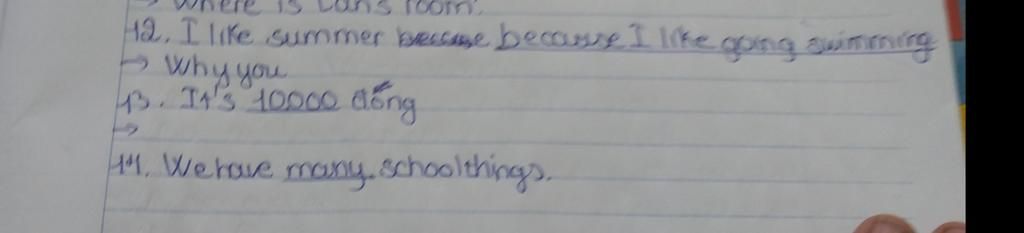 → Where is Lan's room.
12. I like summer because because I like going swimming
→ Why you
13. It's 10000 đồng
→
14. We have many schoolthings.